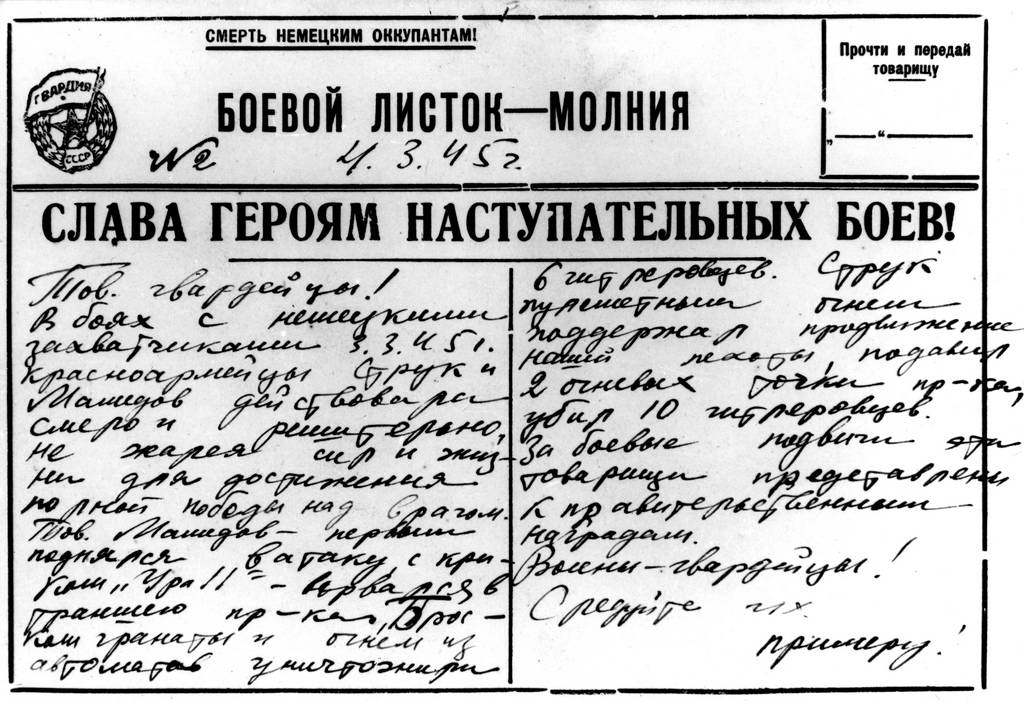 СМЕРТЬ НЕМЕЦКИМ ОККУПАНТАМ!
Прочти и передай
товарищу
„ “
ГВАРДИЯ
СССР
БОЕВОЙ ЛИСТОК—МОЛНИЯ
№2 4. 3. 45 г.
СЛАВА ГЕРОЯМ НАСТУПАТЕЛЬНЫХ БОЕВ!
Тов. гвардейцы!
В боях с немецкими
захватчиками 3.3.45 г.
красноармейцы Струк и
Мамедов действовали
смело и решительно,
не жалея сил и жиз-
ни для достижения
полной победы над врагом.
Тов. Мамедов - первым
поднялся в атаку с кри-
ком „Ура!!" - ворвался в
траншею пр-ка, Брос-
ком гранаты и огнем из
автоматов уничтожили
6 гитлеровцев. Струк
пулеметным огнем
поддержал продвижение
нашей пехоты подавил
2 огневых точки пр-ка,
убил 10 гитлеровцев.
За боевые подвиги эти
товарищи представлены
к правительственным
наградам.
Воины-гвардейцы!
Следуйте их
примеру!